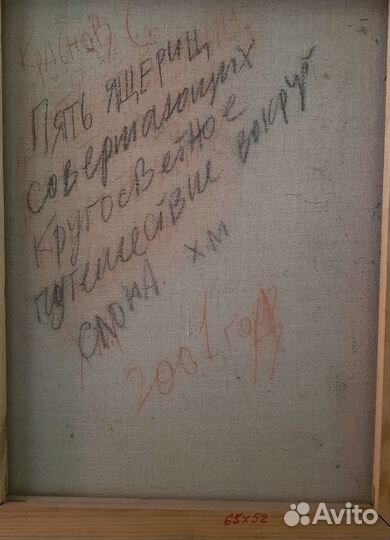 Краснов С.
Пять ящериц
совершающих
кругосветное
путешествие вокруг
слона. х.м
2001 год
65x52
Avito